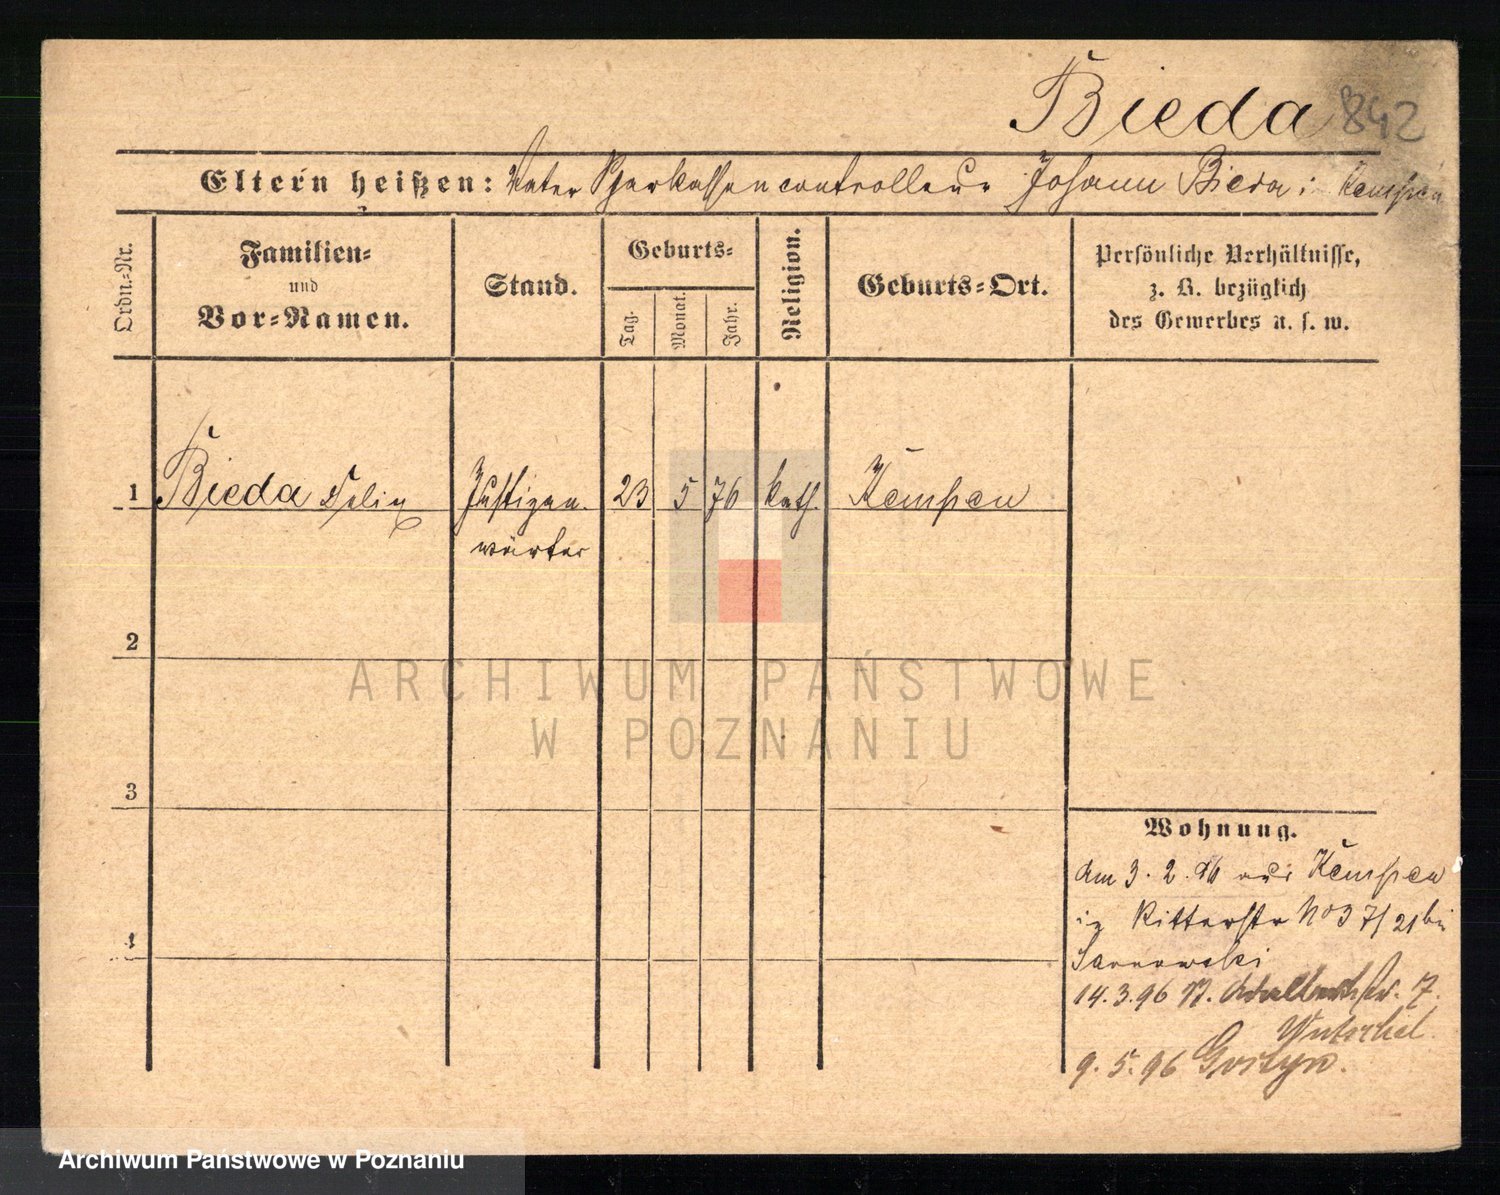 Bieda 842
Eltern heißen: Vater Sparkassencontrolleur Johann Bieda i. Kempen
Ordn.-Nr.
Familien-
und
Vor-Namen.
Stand.
Geburts-
Tag.
Monat.
Jahr.
Religion.
Geburts-Ort.
Persönliche Verhältnisse,
z. B. bezüglich
des Gewerbes u. s. w.
1 Bieda Felix Justizan- 23 5 76 kath. Kempen
wärter
2
3
4
Wohnung.
Am 3. 2. 96 aus Kempen
in Ritterstr No 37/21 bei
Sarnowski
14.3.96 N. Adalbertstr. 7.
9. 5. 96 Gostyn.
ARCHIWUM PAŃSTWOWE
W POZNANIU
Archiwum Państwowe w Poznaniu